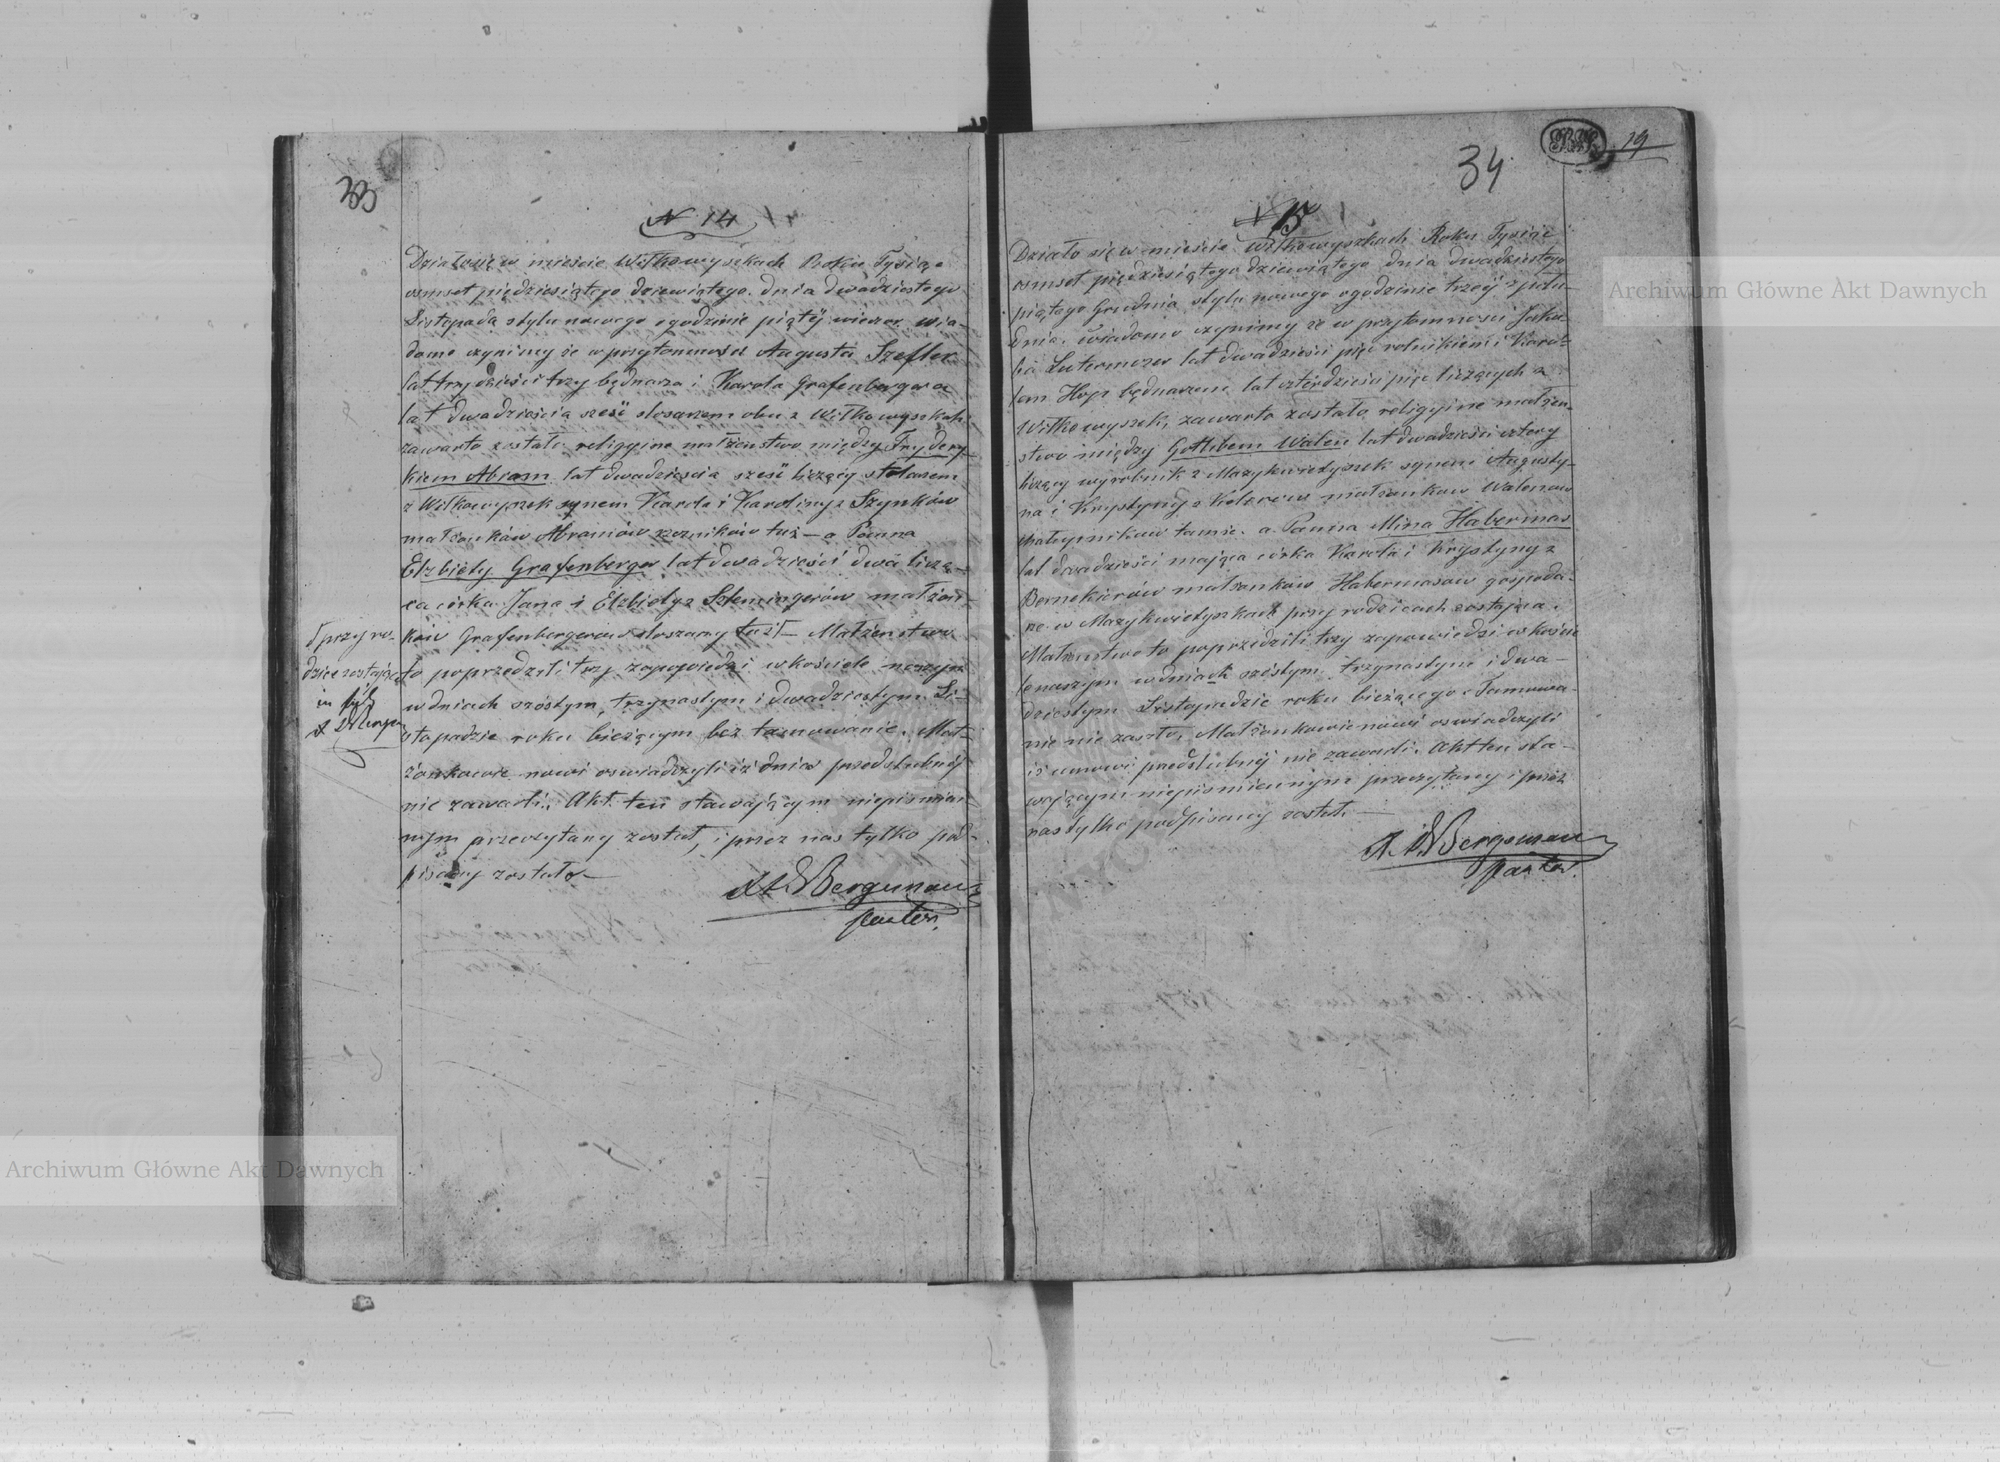 33
N 14
Działo się w mieście Wiłkowyszkach Roku Tysiąc
osmset piędziesiątego dziewiątego. dnia dwudziestego
Listopada stylu nowego o godzinie piątéj wieczor. Wia-
domo czynimy że w przytomności Augusta Szefler
lat trzydzieści trzy bednarza i Karola Grafenbergera
lat dwadzieścia sześć slosarzem obu z Wiłkowyszek
zawarte zostało religijne małżenstwo między Frydery-
kiem Abram lat dwadzieścia sześć liczący stolarzem
z Wiłkowyszek synem Karola i Karoliny z Szynków
małżonków Abramów rzeznikow tuż — a Panna
Elzbiety Grafenberger lat dwadzieści dwa liczą-
ca córka Jana i Elzbiety z Szlemingerów małżon-
ków Grafenbergerow slosarzy tuż — Małżenstwo
to poprzedzili trzy zapowiedzi w kościele naszym
w dniach szóstym, trzynastym i dwudziestym Li-
stopadzie roku bieżącym bez tamowanie. Mał-
żonkowie nowi oswiadczyli iż umów przedslubnéj
nie zawarli. Akt ten stawającym niepismien-
nym przeczytany został, i przez nas tylko pod-
pisany zostało —
Bergmann
Pastor.
przy ro-
dzice zostająca
34
19
N 15
Działo się w mieście Wiłkowyszkach Roku Tysiąc
osmset pięcdziesiątego dziewiątego dnia dwudziestego
piątego Grudnia stylu nowego o godzinie trzeij z połu-
dnia. Wiadomo czynimy że w przytomnosci Jaku-
ba Lutermozer lat dwadzieści pięc rolnikiem i Karo-
lem Hopp bednarzem lat czterdzieści pięc liczących z
Wiłkowyszek, zawarto zostało religijne małżen-
stwo między Gottlibem Walen lat dwadzieści cztery
liczący wyrobnik z Mazykwietyszek synem Augusty-
na i Krystyny z małżonkow Walenow
tamże. a Panna Mina Habermas
lat dwadzieści mająca córka Karola i Krystyny z
małżonków Habermasow gospoda-
rze w Mazykwietyszkach przy rodzicach zostająca.
Małżenstwo to poprzedzili trzy zapowiedzi w koście-
le naszym w dniach szóstym, trzynastym i dwu-
dziestym Listopadzie roku bieżącego. Tamowa-
nie nie zaszło. Małżonkowie nowi oswiadczyli
iż umowi przedslubnéj nie zawarli. Akt ten sta-
wającym niepismiennym przeczytany i przez
nas tylko podpisany został. —
Bergmann
Pastor.
Archiwum Główne Akt Dawnych
Archiwum Główne Akt Dawnych